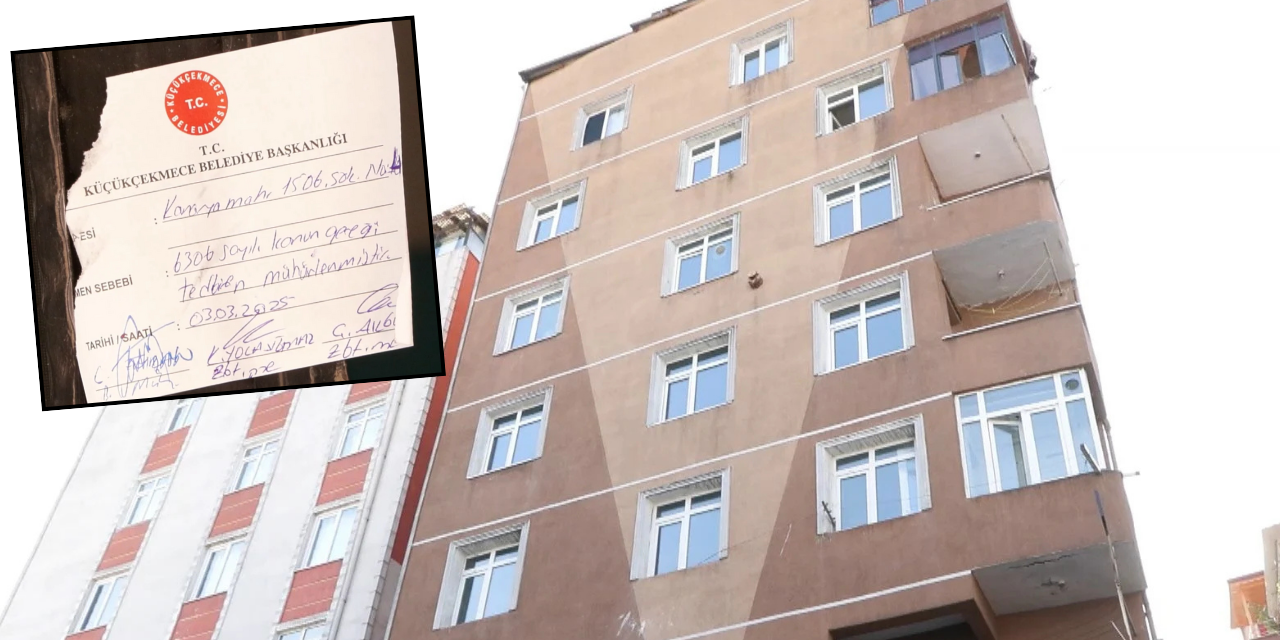 KÜÇÜKÇEKMECE
T.C.
BELEDİYESİ
T.C.
KÜÇÜKÇEKMECE BELEDİYE BAŞKANLIĞI
ESİ : Kanarya mah. 1506. Sok. No:
MEN SEBEBİ : 6306 Sayılı kanun gereği
tedbiren mühürlenmiştir.
TARİHİ / SAATİ : 03.03.2025
Zbt. me
Zbt. me